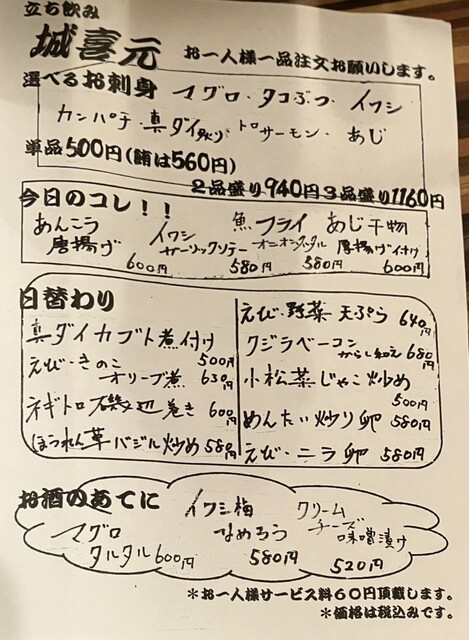 立ち飲み
城喜元 お一人様一品注文お願いします。
選べるお刺身 マグロ・タコぶつ・イワシ
カンパチ・真ダイ炙り・トロサーモン・あじ
単品500円(鮪は560円)
2品盛り940円3品盛り1160円
今日のコレ!!
あんこう唐揚げ 600円
イワシガーリックソテー 580円
魚フライオニオンタルタル 580円
あじ干物唐揚げ 600円
日替わり
真ダイカブト煮付け 500円
えび・きのこオリーブ煮 630円
ネギトロ磯辺巻き 600円
ほうれん草バジル炒め 580円
えび・野菜天ぷら 640円
クジラベーコンからし和え 680円
小松菜じゃこ炒め 500円
めんたい炒り卵 580円
えび・ニラ卵 580円
お酒のあてに
マグロタルタル 600円
イワシ梅なめろう 580円
クリームチーズ味噌漬け 520円
*お一人様サービス料60円頂戴します。
*価格は税込みです。